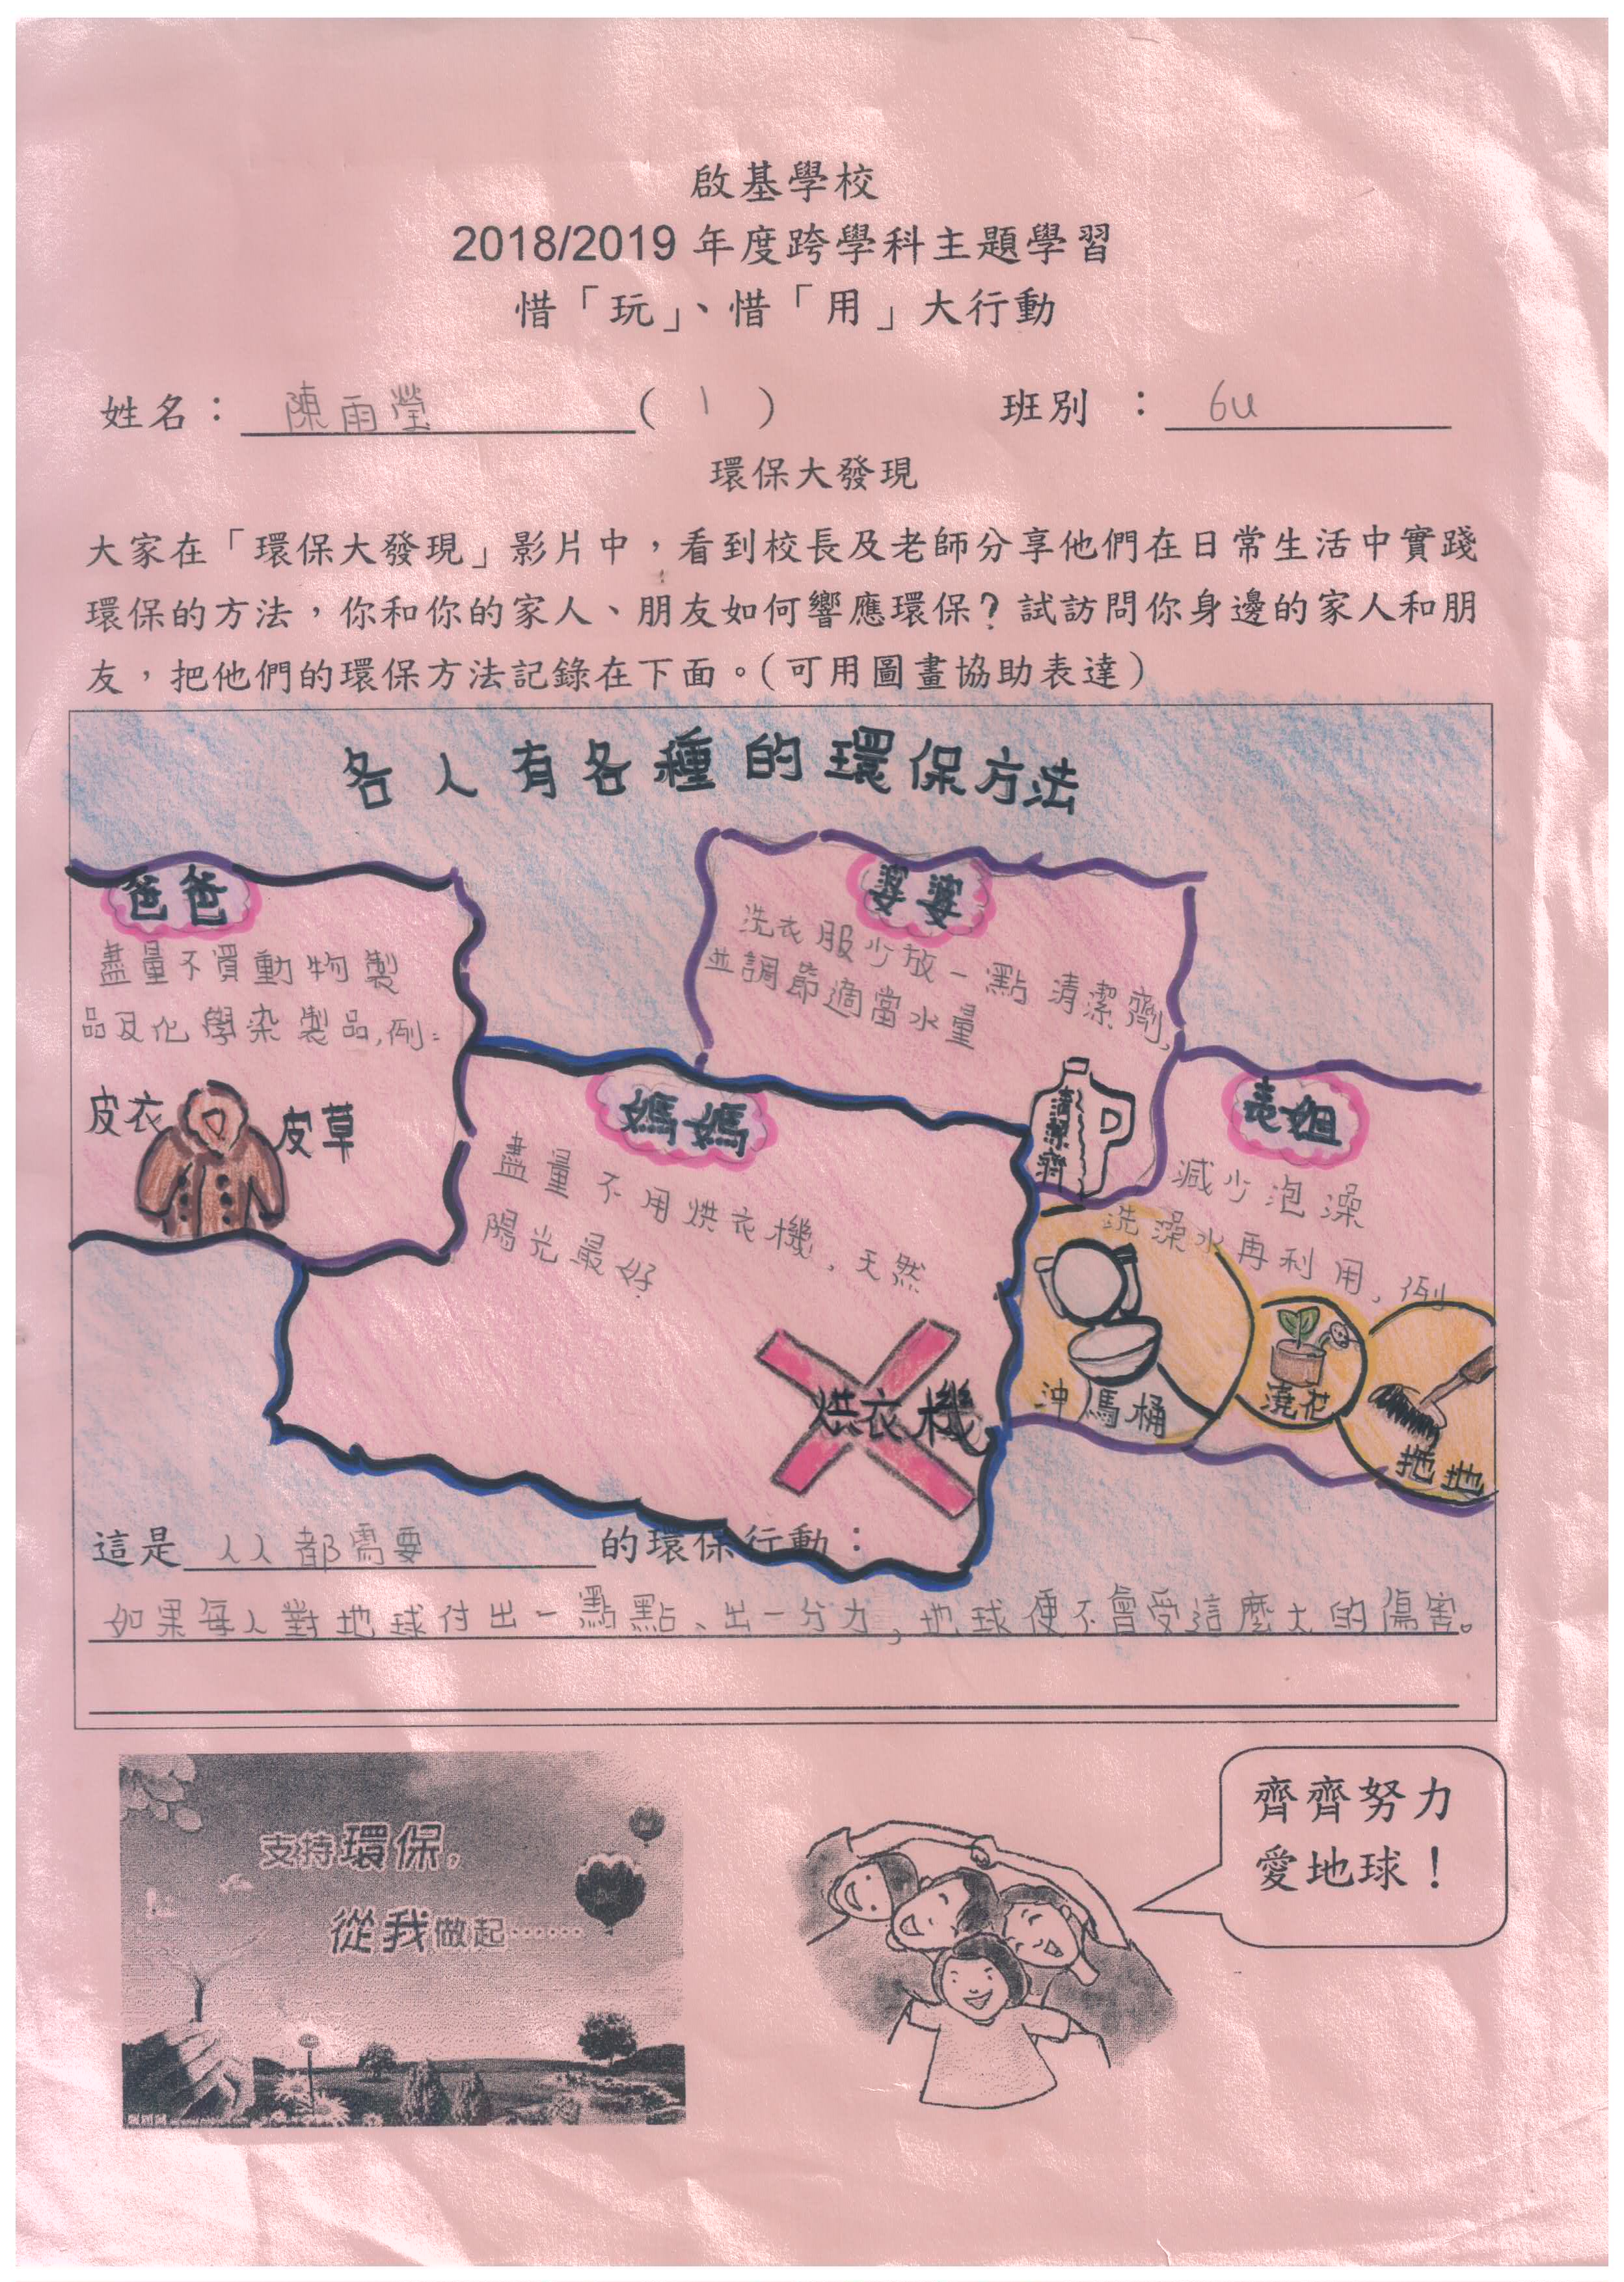 啟基學校
2018/2019 年度跨學科主題學習
惜「玩」、惜「用」大行動
姓名： 陳雨瑩 ( 1 ) 班別 ： 6U
環保大發現
大家在「環保大發現」影片中，看到校長及老師分享他們在日常生活中實踐
環保的方法，你和你的家人、朋友如何響應環保？試訪問你身邊的家人和朋
友，把他們的環保方法記錄在下面。（可用圖畫協助表達）
各人有各種的環保方法
爸爸
盡量不買動物製
品及化學染製品,例:
皮衣
皮草
婆婆
洗衣服少放一點清潔劑,
並調節適當水量
清潔劑
媽媽
盡量不用烘衣機, 天然
陽光最好
烘衣機
表姐
減少泡澡
洗澡水再利用, 例
沖馬桶
澆花
拖地
這是 人人都需要 的環保行動：
如果每人對地球付出一點點、出一分力, 地球便不會受這麼大的傷害。
支持環保,
從我做起······
齊齊努力
愛地球！